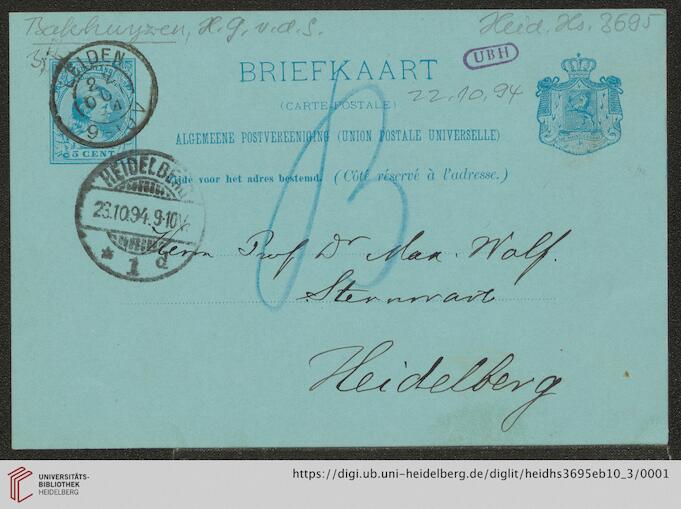 Bakhuyzen, H. G. v. d. S.
Heid. Hs. 3695
UBH
BRIEFKAART
(CARTE POSTALE)
22.10.94
ALGEMEENE POSTVEREENIGING (UNION POSTALE UNIVERSELLE)
Zijde voor het adres bestemd. (Côté réservé à l'adresse.)
LEIDEN
5 CENT
HEIDELBERG
23.10.94.9-10V
* 1 d
B
Herrn Prof Dr Max. Wolf.
Sternwarte
Heidelberg
UNIVERSITÄTS-
BIBLIOTHEK
HEIDELBERG
https://digi.ub.uni-heidelberg.de/diglit/heidhs3695eb10_3/0001